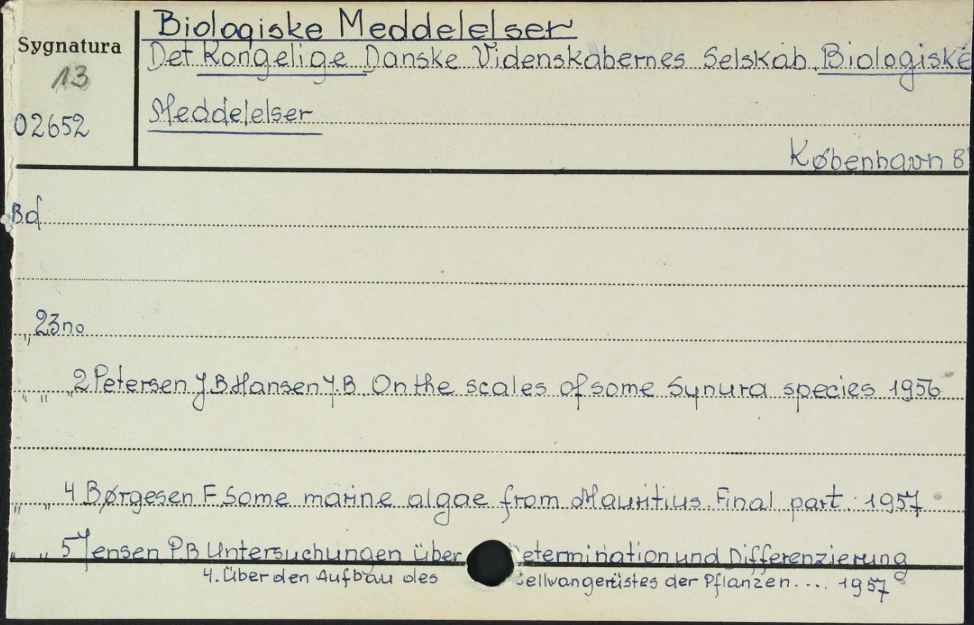 Biologiske Meddelelser
Sygnatura
Det Kongelige Danske Videnskabernes Selskab. Biologiske
13
Meddelelser
02652
København 8
Bd
„ 23 no
„ „ „ 2 Petersen J.B. Hansen J.B. On the scales of some Synura species 1956
„ „ 4 Børgesen F. Some marine algae from Mauritius. Final part. 1957
„ „ 5 Jensen P.B. Untersuchungen über etermination und Differenzierung
4. Über den Aufbau des ellwangerüstes der Pflanzen.... 1957